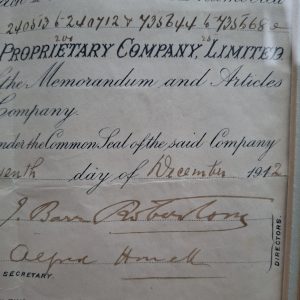 240513 to 240712 & 735644 to 735668
PROPRIETARY COMPANY, LIMITED
the Memorandum and Articles
Company.
under the Common Seal of the said Company
day of December 1912
J. Barr Robertson
DIRECTORS.
Alfred
SECRETARY.